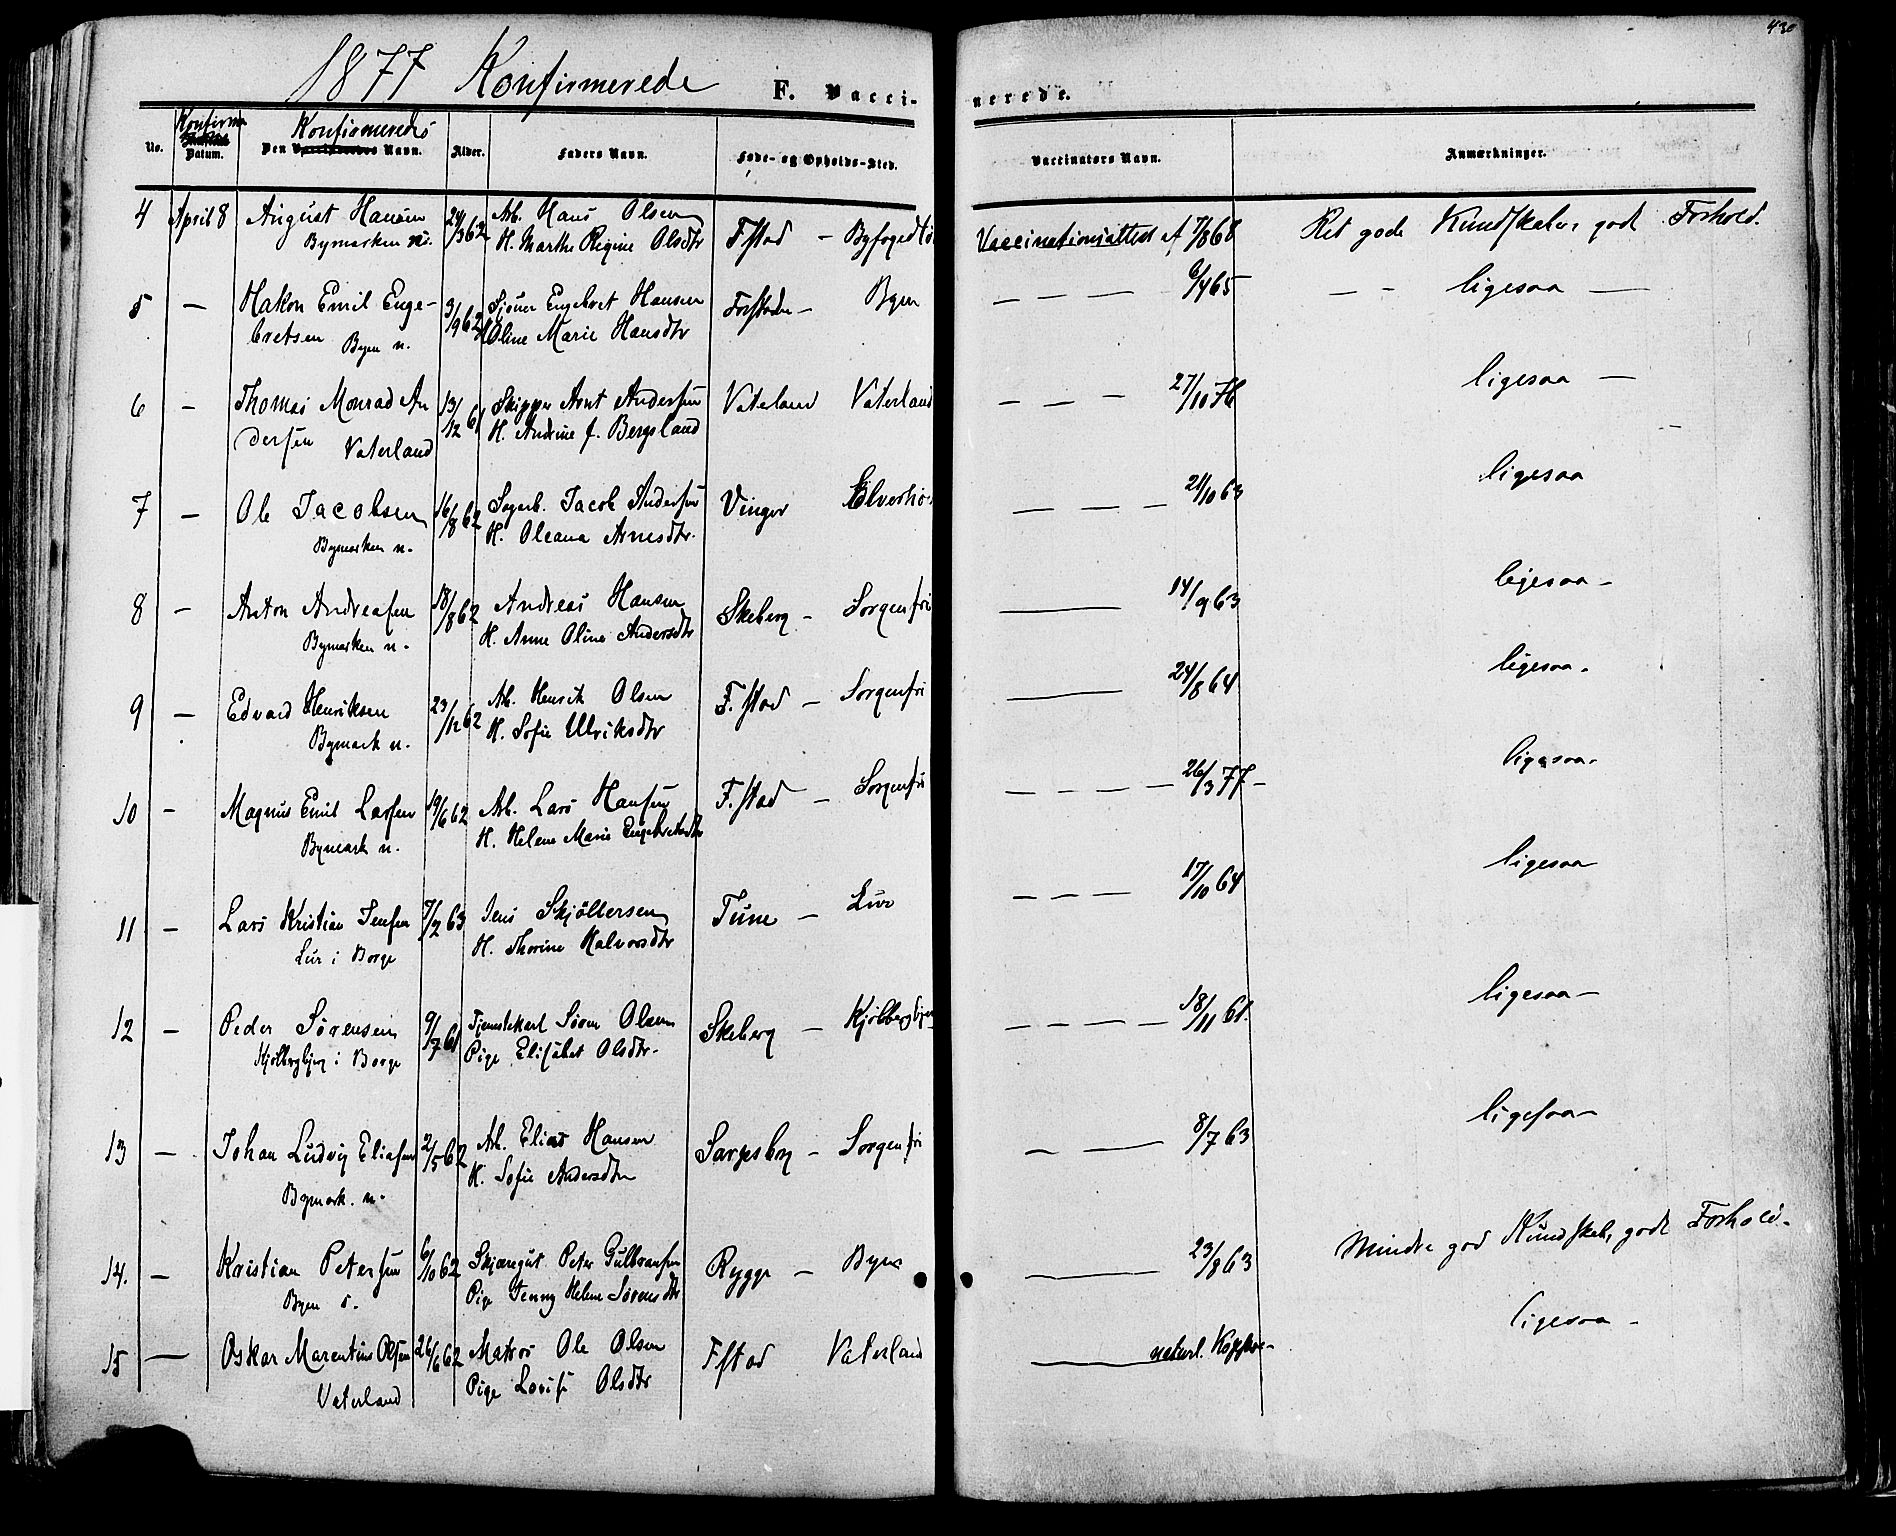 430
1877 Konfirmerede F. Vacci- nerede.
No. Konfirm. Datum. Konfirmeredes Den Vaccineredes Navn. Alder. Faders Navn. Føde- og Opholds-Sted. Vaccinators Navn. Anmærkninger.
4 April 8 August Hansen 24/3 62 Arb. Hans Olsen Fstad – Byfogedlø Vaccinationsattest af 7/8 68 Ret gode Kundskaber, godt Forhold.
Bymarken n. H. Marthe Regine Olsdtr
5 – Hakon Emil Enge- 3/9 62 Sjöner Engebret Hansen Forstaden – Byen – – – 6/4 65 – – ligesaa –
bretsen Byen n. H. Oline Marie Hansdtr
6 – Thomas Monrad An 13/12 61 Skipper Arnt Andersen Vaterland Vaterland – – – 27/10 76 ligesaa –
dersen Vaterland H. Andrine f. Bergsland
7 – Ole Jacobsen 16/8 62 Sagarb. Jacob Andersen Vinger Elverhø – – – 21/10 63 ligesaa
Bymarken n. H. Oleana Arnesdtr.
8 – Anton Andreasen 18/8 62 Andreas Hansen Skeberg – Sorgenfri – 14/9 63 ligesaa –
Bymarken n. H. Anne Oline Andersdtr
9 – Edvard Henriksen 23/12 62 Arb. Henrik Olsen F.stad – Sorgenfri – 24/8 64 ligesaa.
Bymark n. H. Sofie Ulriksdtr
10 – Magnus Emil Larsen 19/6 62 Arb. Lars Hansen F.stad – Sorgenfri – – – – 26/3 77 – ligesaa.
Bymark n. H. Helene Marie Engebretsdtr
11 – Lars Kristian Jensen 7/2 63 Jens Skjöltersen Tune – Lur – – – 17/10 64 ligesaa
Lur i Borge H. Thorine Halvorsdtr
12 – Peder Sörensen 9/7 61 Tjenestekarl Sören Olsen Skeberg – Kjölbergbjerg – – – – 18/11 61. ligesaa –
Kjölbergbjerg i Borge Pige Elisabet Olsdtr.
13 – Johan Ludvig Eliasen 2/5 62 Arb. Elias Hansen Sarpsborg – Sorgenfri – – 8/7 63 ligesaa –
Bymark. n. H. Sofie Andersdtr
14. – Kristian Petersen 6/10 62 Skjæregut Peter Gulbransen Rygge – Byen – 23/8 63 Mindre god Kundskab, godt Forhold.
Byen s. Pige Jenny Helene Sörensdtr
15 – Oskar Marentius Olsen 26/6 62 Matros Ole Olsen Fstad Vaterland – naturl. Kopper – ligesaa –
Vaterland Pige Lovise Olsdtr